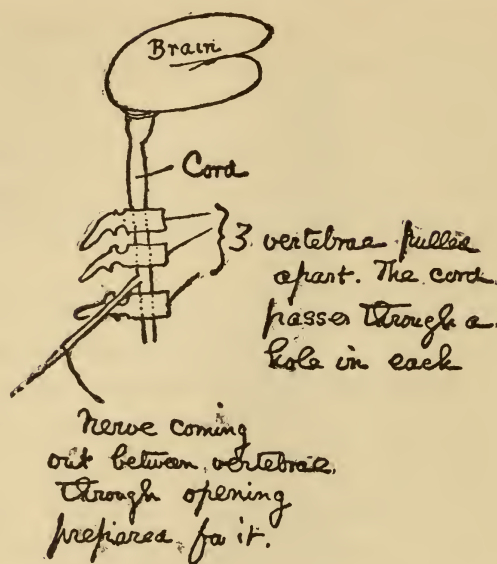 Brain
Cord
3 vertebrae pulled
apart. The cord
passes through a
hole in each
Nerve coming
out between vertebrae,
through opening
prepared for it.